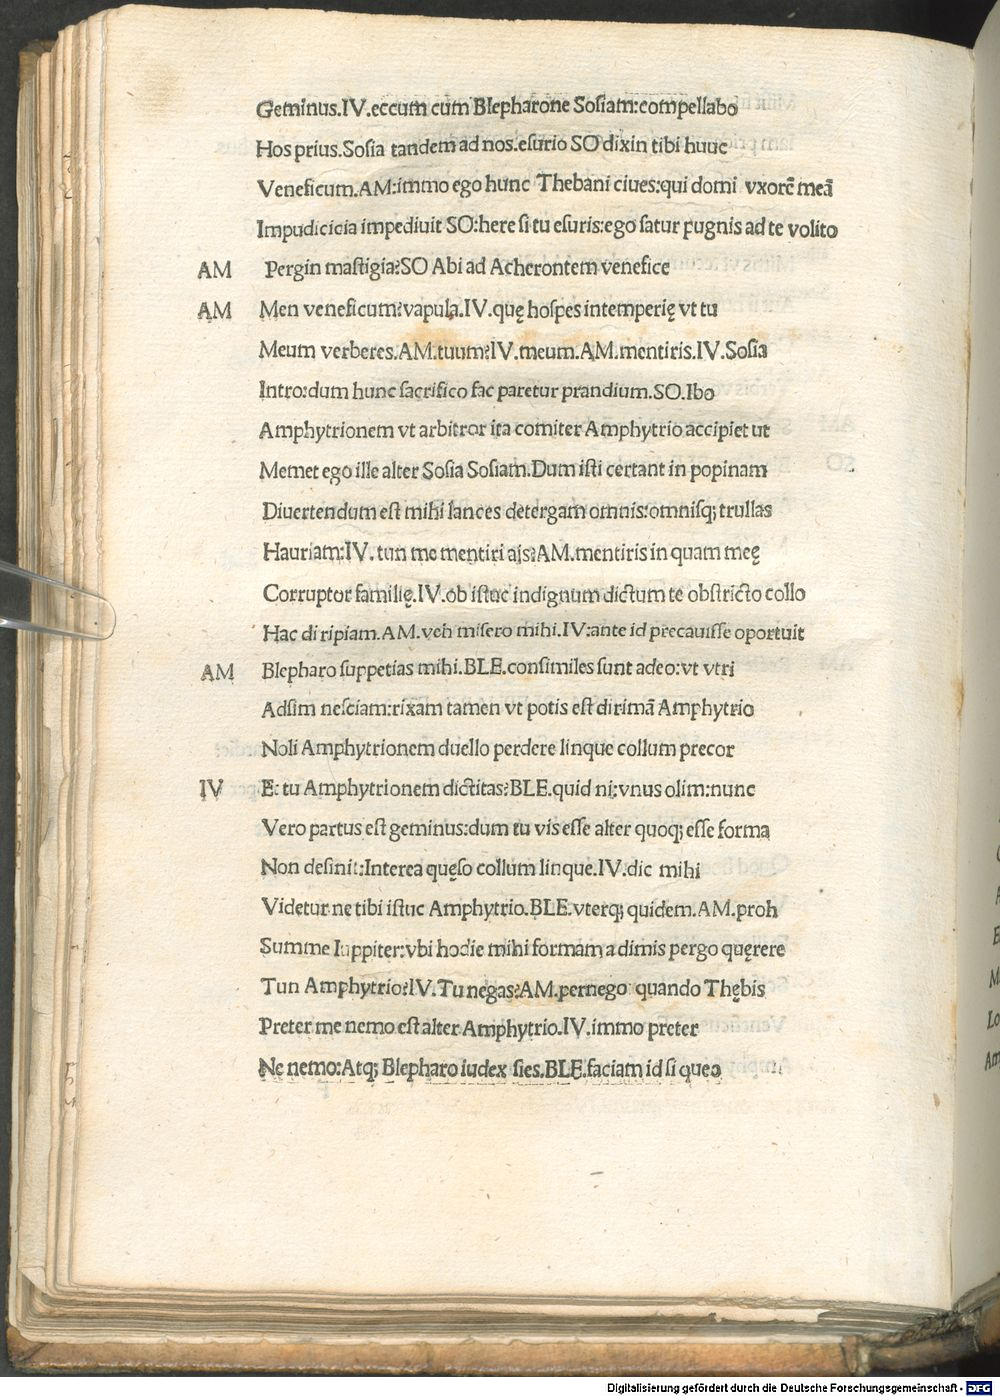 Geminus.IV.eccum cum Blepharone Sosiam:compellabo
Hos prius.Sosia tandem ad nos.esurio SO dixin tibi hunc
Veneficum.AM:immo ego hunc Thebani ciues:qui domi vxorē meā
Impudicicia impediuit SO:here si tu esuris:ego satur pugnis ad te volito
AM Pergin mastigia?SO Abi ad Acherontem venefice
AM Men veneficum?vapula.IV.quę hospes intemperię vt tu
Meum verberes.AM.tuum?IV.meum.AM.mentiris.IV.Sosia
Intro:dum hunc sacrifico fac paretur prandium.SO.Ibo
Amphytrionem vt arbitror ita comiter Amphytrio accipiet ut
Memet ego ille alter Sosia Sosiam.Dum isti certant in popinam
Diuertendum est mihi lances detergam omnis:omnisq; trullas
Hauriam:IV. tun me mentiri ais?AM.mentiris in quam meę
Corruptor familię.IV.ob istuc indignum dictum te obstricto collo
Hac diripiam.AM.veh misero mihi.IV:ante id precauisse oportuit
AM Blepharo suppetias mihi.BLE.consimiles sunt adeo:vt vtri
Adsim nesciam:rixam tamen vt potis est dirimā Amphytrio
Noli Amphytrionem duello perdere linque collum precor
IV E: tu Amphytrionem dictitas?BLE.quid ni:vnus olim:nunc
Vero partus est geminus:dum tu vis esse alter quoq; esse forma
Non desinit:Interea quęso collum linque.IV.dic mihi
Videtur ne tibi istuc Amphytrio.BLE.vterq; quidem.AM.proh
Summe Iuppiter:vbi hodie mihi formam adimis pergo quęrere
Tun Amphytrio?IV.Tu negas?AM.pernego quando Thębis
Preter me nemo est alter Amphytrio.IV.immo preter
Ne nemo:Atq; Blepharo iudex sies.BLE.faciam id si queo
Digitalisierung gefördert durch die Deutsche Forschungsgemeinschaft - DFG